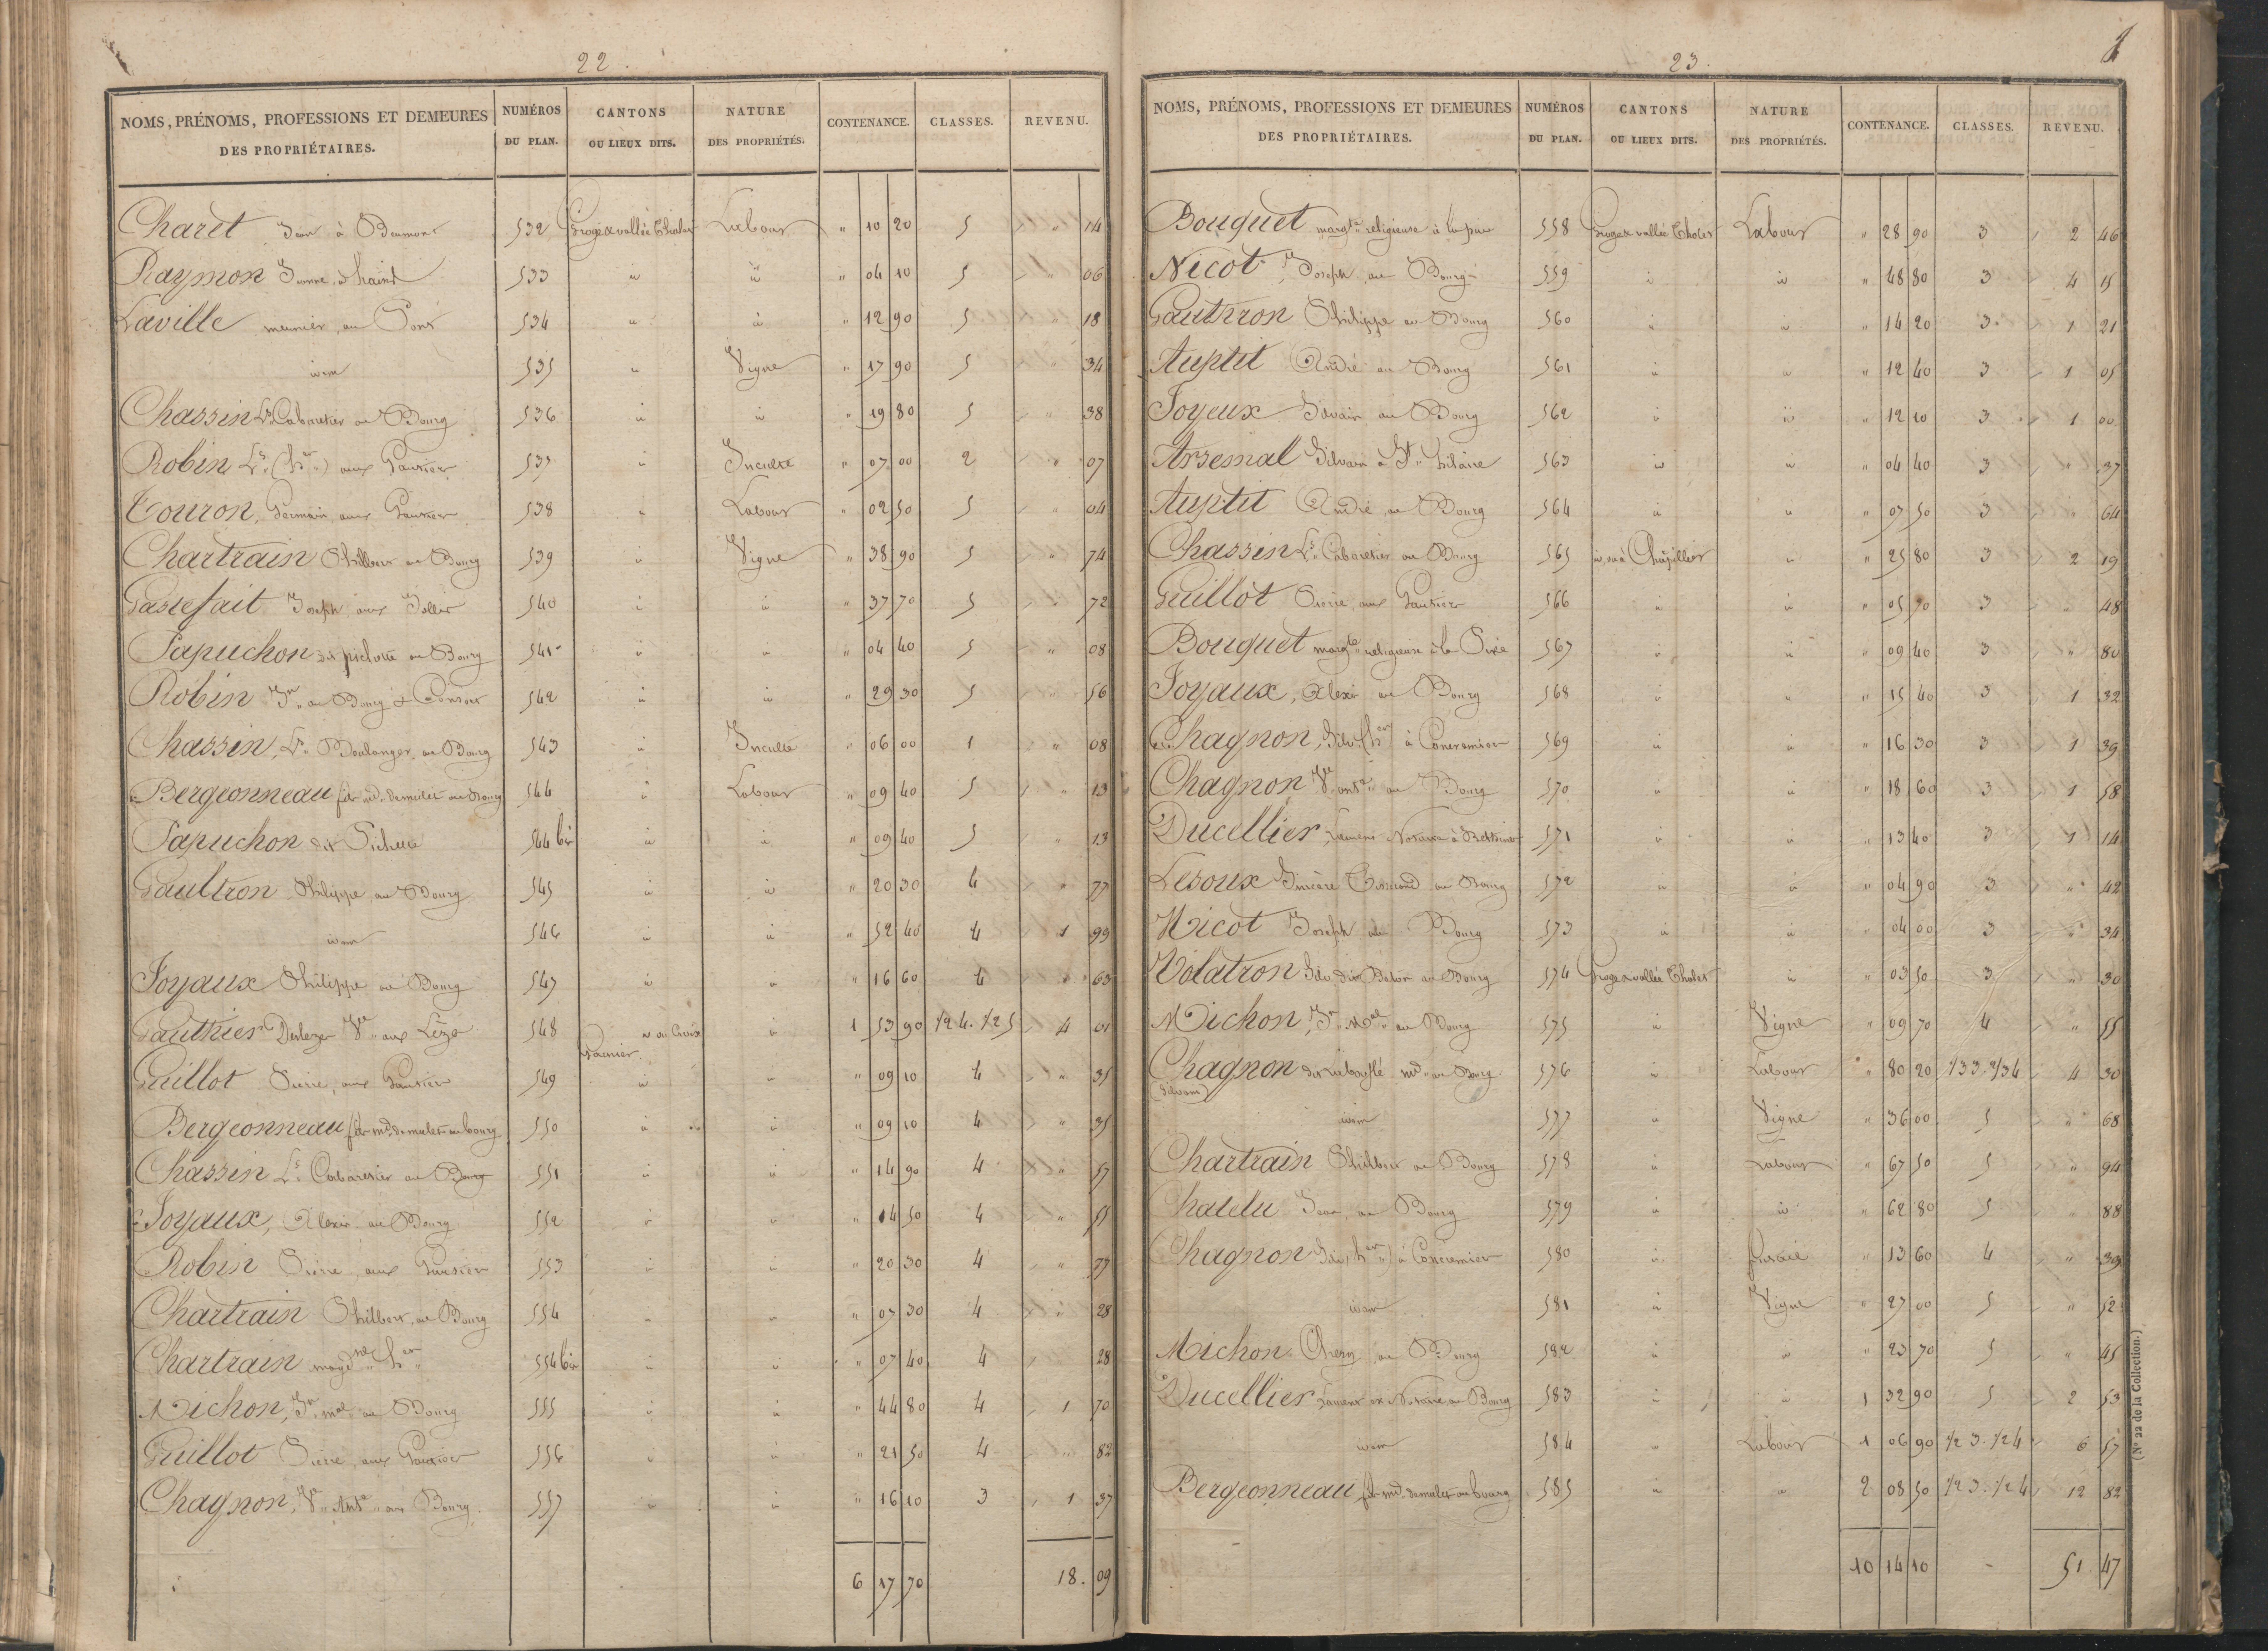 22.
NOMS, PRÉNOMS, PROFESSIONS ET DEMEURES DES PROPRIÉTAIRES. NUMÉROS DU PLAN. CANTONS OU LIEUX DITS. NATURE DES PROPRIÉTÉS. CONTENANCE. CLASSES. REVENU.
Charet Jean à 532 vallée Labour " 10 20 5 " 14
Raymon 533 id id " 04 10 5 " 06
Laville meunier, au Pont 534 id id " 12 90 5 " 18
idem 535 id Vigne " 17 90 5 " 34
Chassin Ls Cabaretier au Bourg 536 id id " 19 80 5 " 38
Robin Ls (hers) aux Gautier 537 id Inculte " 07 00 2 " 07
Touron, Germain, aux Gautier 538 id Labour " 02 50 5 " 04
Chartrain Philbert au Bourg 539 id Vigne " 38 90 5 " 74
Gastefait Joseph aux 540 id id " 37 70 5 " 72
Papuchon dit au Bourg 541 id id " 04 40 5 " 08
Robin Jn au Bourg & Consort 542 id id " 29 30 5 " 56
Chassin, Ls Boulanger au Bourg 543 id Inculte " 06 00 1 " 08
Bergeonneau fils md de mulet au Bourg 544 id Labour " 09 40 5 " 13
Papuchon dit 544 bis id id " 09 40 5 " 13
Gaultron Philippe au Bourg 545 id id " 20 30 4 " 77
idem 546 id id " 52 40 4 1 99
Joyaux Philippe au Bourg 547 id id " 16 60 4 " 63
Gauthier Ve aux 548 id ou Croix Garnier id 1 53 90 1/2 4. 1/2 5 4 01
Guillot Pierre, aux Gautier 549 id id " 09 10 4 " 35
Bergeonneau fils md de mulet au bourg 550 id id " 09 10 4 " 35
Chassin Ls Cabaretier au Bourg 551 id id " 14 90 4 " 57
Joyaux, Alexis au Bourg 552 id id " 14 50 4 " 55
Robin Pierre, aux Gautier 553 id id " 20 30 4 " 77
Chartrain Philbert, au Bourg 554 id id " 07 30 4 " 28
Chartrain hers 554 bis id id " 07 40 4 28
Michon, Jn mal au Bourg 555 id id " 44 80 4 1 70
Guillot Pierre, aux Gautier 556 id id " 21 50 4 " 82
Chagnon, Ve Ante au Bourg 557 id id " 16 10 3 1 37
6 17 70 18. 09
23.
NOMS, PRÉNOMS, PROFESSIONS ET DEMEURES DES PROPRIÉTAIRES. NUMÉROS DU PLAN. CANTONS OU LIEUX DITS. NATURE DES PROPRIÉTÉS. CONTENANCE. CLASSES. REVENU.
Bouquet margte religieuse à 558 vallée Labour " 28 90 3 2 46
Nicot Joseph, au Bourg 559 id id " 48 80 3 4 15
Gautrron Philippe au Bourg 560 id id " 14 20 3 1 21
Auptit André au Bourg 561 id id " 12 40 3 1 05
Joyeux Silvain au Bourg 562 id id " 12 10 3 1 00
Arsemal Silvain à St hilaire 563 id id " 04 40 3 " 37
Auptit André, au Bourg 564 id id " 07 50 3 " 64
Chassin Ls Cabaretier au Bourg 565 id id " 25 80 3 2 19
Guillot Pierre, aux Gautier 566 id id " 05 70 3 " 48
Bouquet margte religieuse à la 567 id id " 09 40 3 " 80
Joyaux, Alexis au Bourg 568 id id " 15 40 3 1 32
Chagnon, Silv (hers) à Concremier 569 id id " 16 30 3 1 39
Chagnon Ve ante au Bourg 570 id id " 18 60 3 1 58
Ducellier, Laurent Notaire à 571 id id " 13 40 3 1 14
Lesoux au Bourg 572 id id " 04 90 3 " 42
Nicot Joseph au Bourg 573 id id " 04 00 3 " 34
Volatron Silv dit au Bourg 574 vallée id " 03 50 3 " 30
Michon, Jn Mal au Bourg 575 id Vigne " 09 70 4 " 55
Chagnon dit md au Bourg (Silvain) 576 id Labour " 80 20 1/3 3. 2/3 4 4 30
idem 577 id Vigne " 36 00 5 " 68
Chartrain Philbert au Bourg 578 id Labour " 67 50 5 " 94
Chatelu Jean, au Bourg 579 id id " 62 80 5 " 88
Chagnon Silv (hers) à Concremier 580 id " 13 60 4 " 39
idem 581 id Vigne " 27 00 5 " 52
Michon au Bourg 582 id id " 23 70 5 " 45
Ducellier Laurent ex Notaire au Bourg 583 id id 1 32 90 5 2 53
idem 584 id Labour 1 06 90 1/2 3. 1/2 4 6 57
Bergeonneau fils md de mulet au bourg 585 id id 2 08 50 1/2 3. 1/2 4 12 82
10 14 10 51 47
(No 22 de la Collection.)